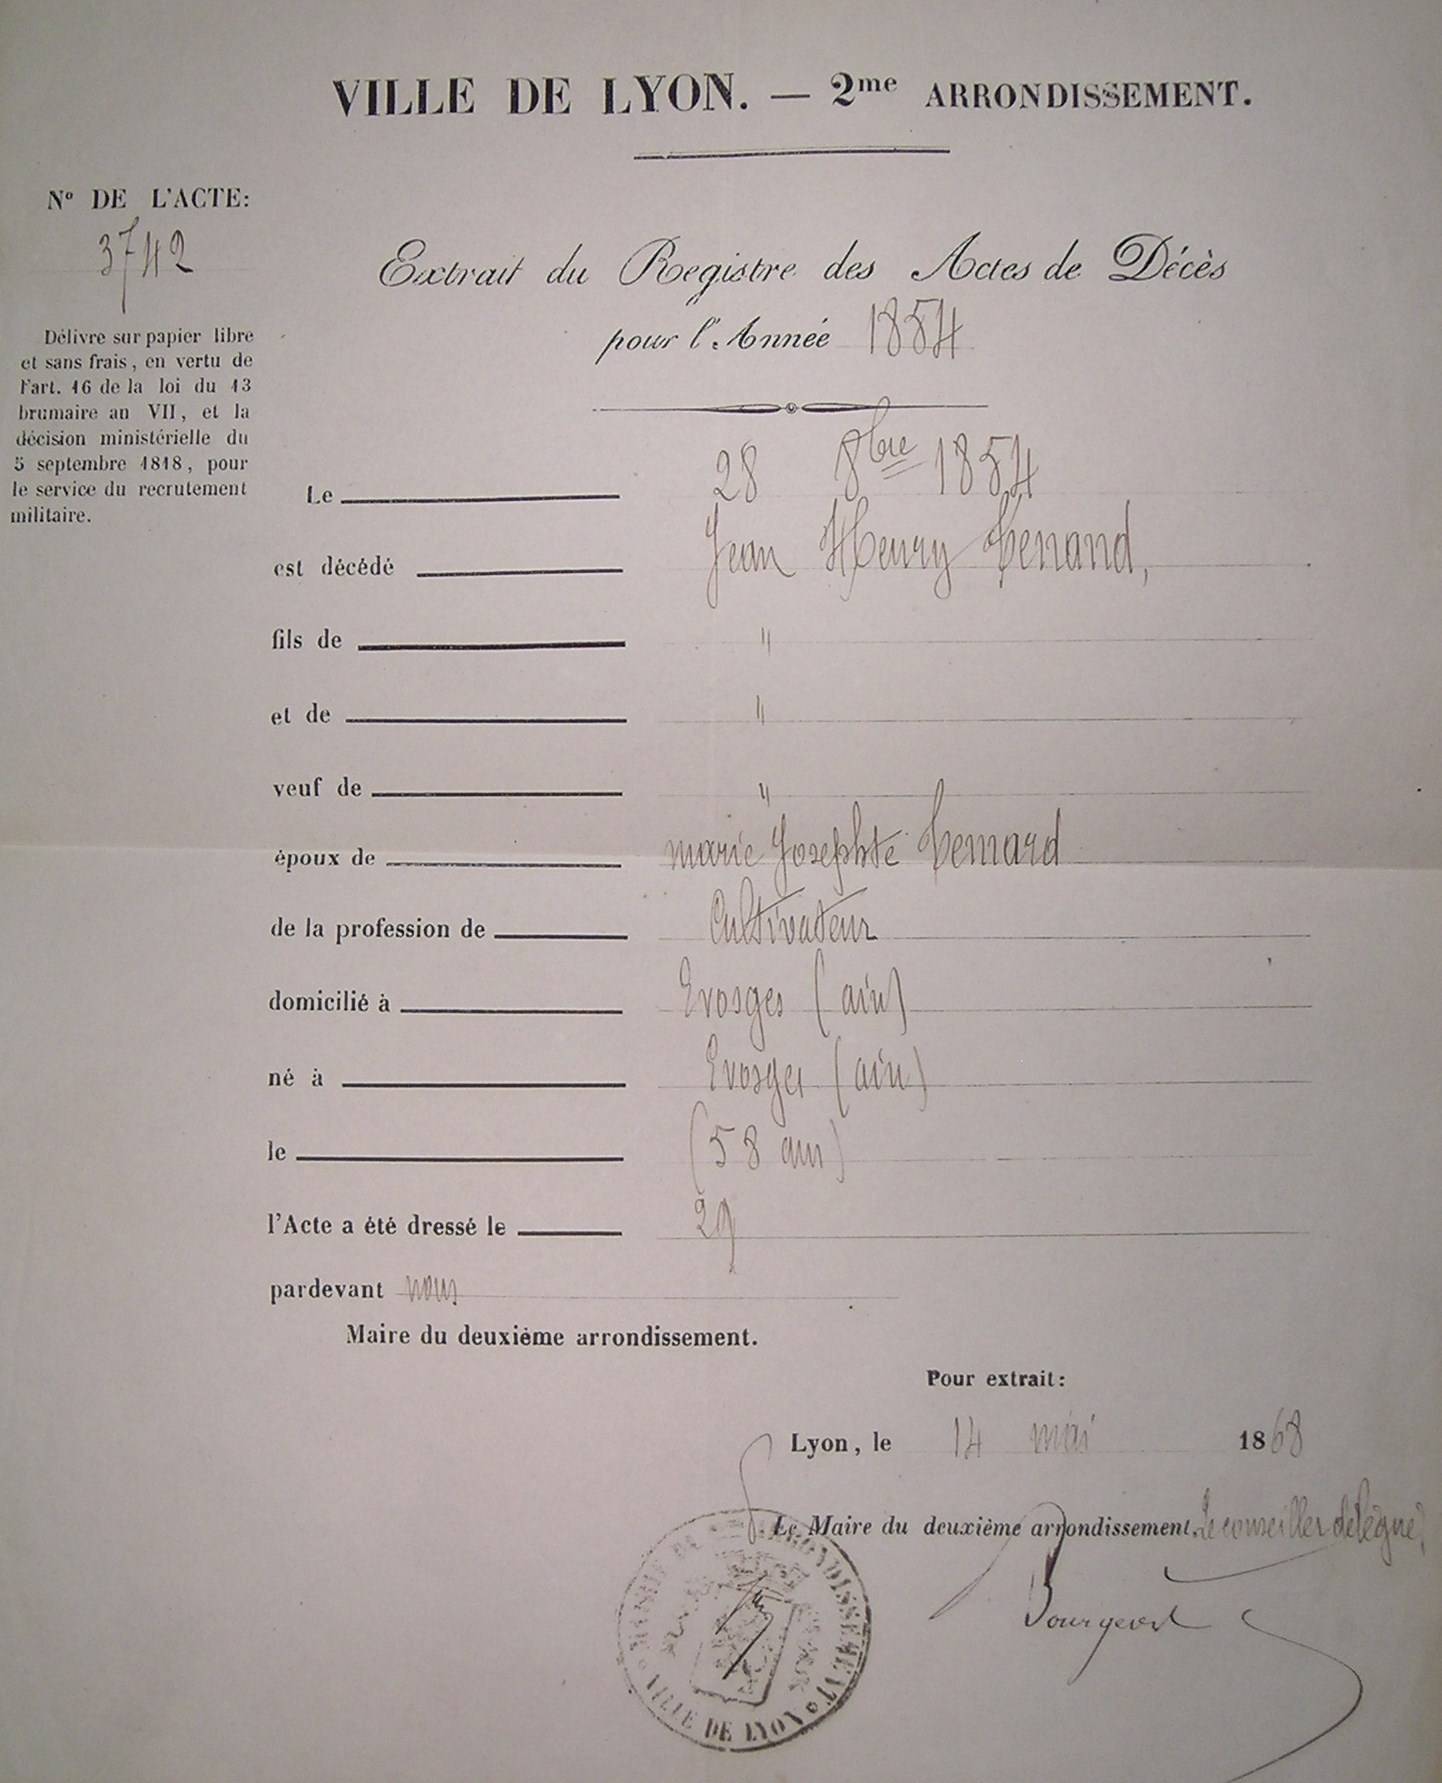 VILLE DE LYON. — 2me ARRONDISSEMENT.
No DE L'ACTE:
3742
Délivre sur papier libre
et sans frais, en vertu de
l'art. 16 de la loi du 13
brumaire an VII, et la
décision ministérielle du
5 septembre 1818, pour
le service du recrutement
militaire.
Extrait du Registre des Actes de Décès
pour l'Année 1854
Le 28 8bre 1854
est décédé Jean Henry
fils de "
et de "
veuf de "
époux de marie Josephte
de la profession de Cultivateur
domicilié à Evosges (ain)
né à Evosges (ain)
le (58 ans)
l'Acte a été dressé le 29
pardevant nous
Maire du deuxième arrondissement.
Pour extrait:
Lyon, le 14 mai 1868
Le Maire du deuxième arrondissement, Le conseiller délégué,
MAIRIE DU 2me ARRONDISSEMENT
VILLE DE LYON